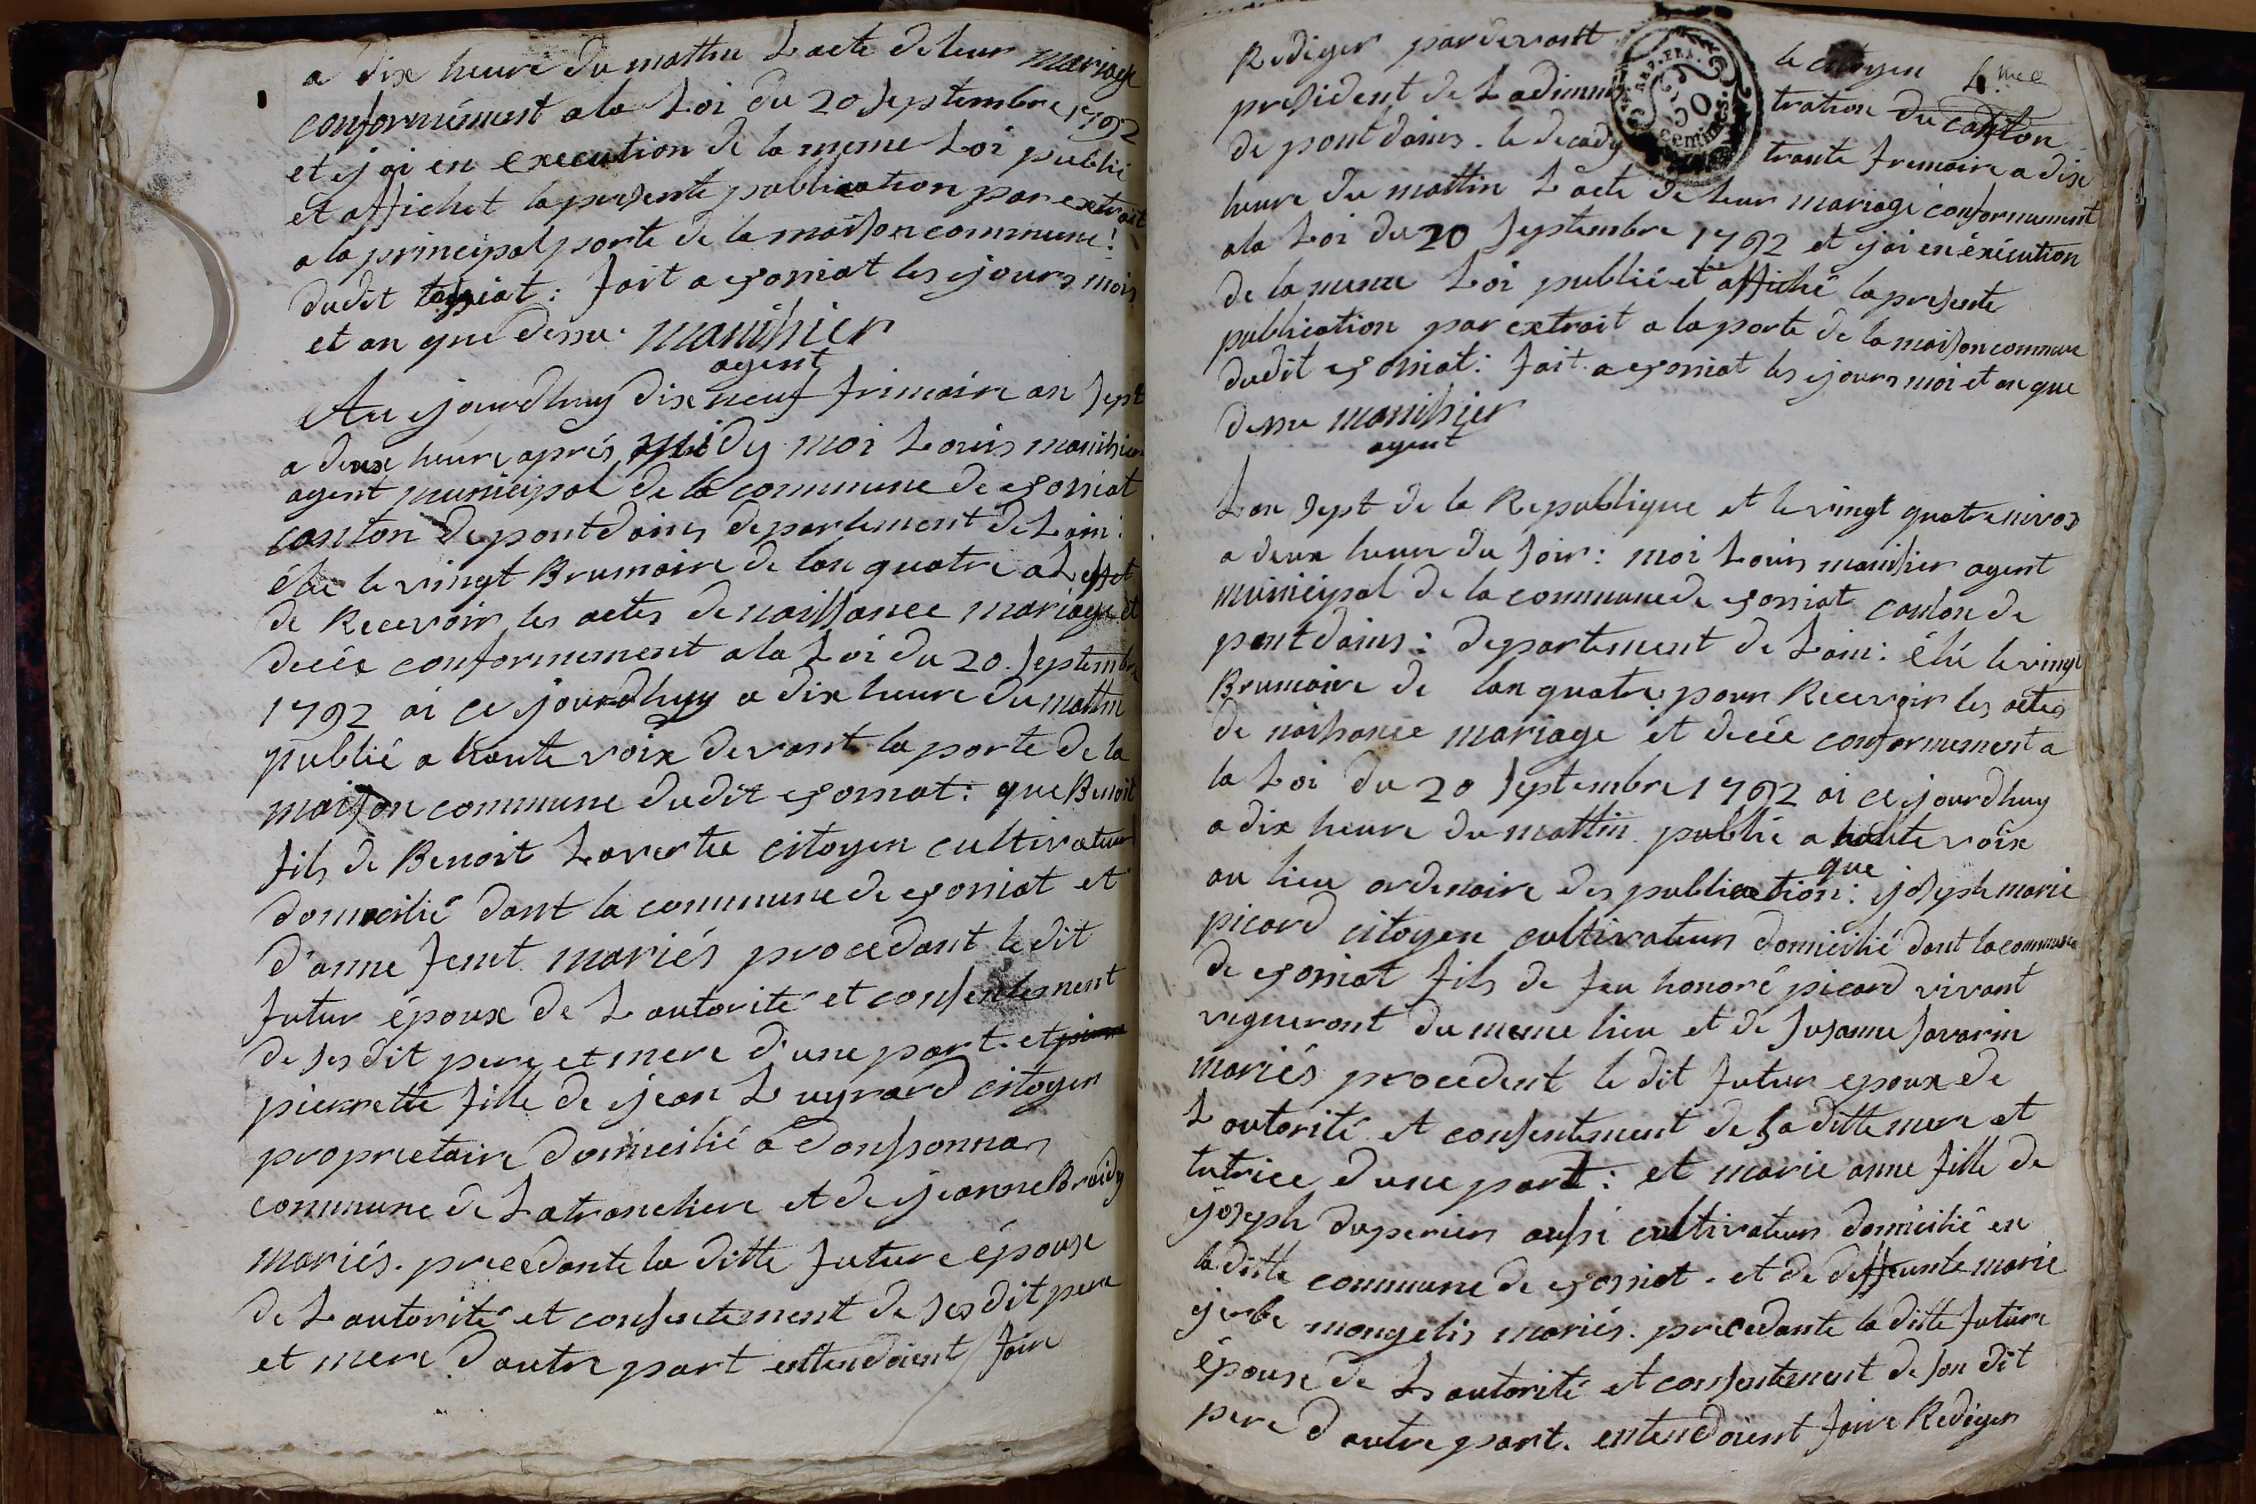 a dix heure du mattin Lacte de leur mariage
conformément a la Loi du 20 septembre 1792
et jai en execution de la meme Loi publié
et affichet la presente publication par extrait
a la principal porte de la maison commune
dudit : fait a jossiat les jours mois
et an que dessu. manihier
agent
Au jourdhuy dix neuf frimaire an sept
a deux heure aprés midy moi Louis manihier
agent municipal de la commune de jossiat
canton de pont dains departement de Lain :
élu le vingt Brumaire de lan quatre a Leffet
de Recevoir les actes de naissance mariage et
decée conformement a la Loi du 20 septembre
1792 ai ce jourdhuy a dix heure du mattin
publié a haute voix devant la porte de la
maison commune dudit jossiat : que Benoit
fils de Benoit Laverlee citoyen cultivateur
domicilié dant la commune de jossiat et
d'anne fenet mariés procedant le dit
futur époux de Lautorité et consentement
de ses dit pere et mere d'une part. et
pierrette fille de jean Luyrard citoyen
proprietaire domicilié a donsonnas
commune de Latranchere et de jeanne Broidy
mariés. precedante la ditte future épouse
de Lautorité et consentement de ses dit pere
et mere dautre part entendoient foire
Rediger pardevant le citoyen
president de Ladimins tration du canton
de pont dains. le decady trante frimaire a dix
heure du mattin Lacte de leur mariage conformement
a la Loi du 20 septembre 1792 et jai en éxécution
de la meme Loi publié et affiché la presente
publication par extrait a la porte de la maison commune
dudit jossiat : fait a jossiat les jours moi et an que
dessu manihier
agent
Lan sept de la Republique et le vingt quatre nivos
a deux heure du soir : moi Louis manihier agent
municipal de la commune de jossiat canton de
pont dains : departement de Lain : élu le vingt
Brumaire de lan quatre pour Recevoir les actes
de naissance mariage et decée conformement a
la Loi du 20 septembre 1792 ai ce jourdhuy
a dix heure du mattin publié a haute voix
au lieu ordenaire des publication : que joseph marie
picard citoyen cultivateur domicilié dant la commune
de jossiat fils de feu honoré picard vivant
vigneront du meme lieu et de susanne savarin
mariés procedent le dit futur epoux de
Lautorité et consentement de sa ditte mere et
tutrice d'une part : et marie anne fille de
joseph duperier aussi cultivateur domicilié en
la ditte commune de jossiat. et de deffeunte marie
jerbe mongelis mariés. precedante la ditte future
épouse de Lautorité et consentement de son dit
pere dautre part. entendoient foire Rediger
REP. FRA.
50
centimes.